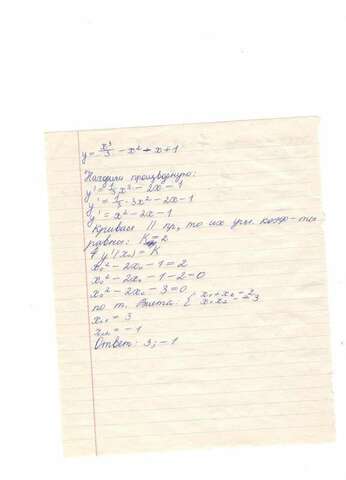 y = x³/3 - x² - x + 1
Находим производную:
y' = 1/3 x² - 2x - 1
y' = 1/3 · 3x² - 2x - 1
y' = x² - 2x - 1
Кривые // пр, то их угл. коэф-ты
равны: K = 2
y'(x₀) = K
x₀² - 2x₀ - 1 = 2
x₀² - 2x₀ - 1 - 2 = 0
x₀² - 2x₀ - 3 = 0
по т. Виета: { x₁ + x₂ = 2 x₁x₂ = -3
x₀₁ = 3
x₀₂ = -1
Ответ: 3; -1